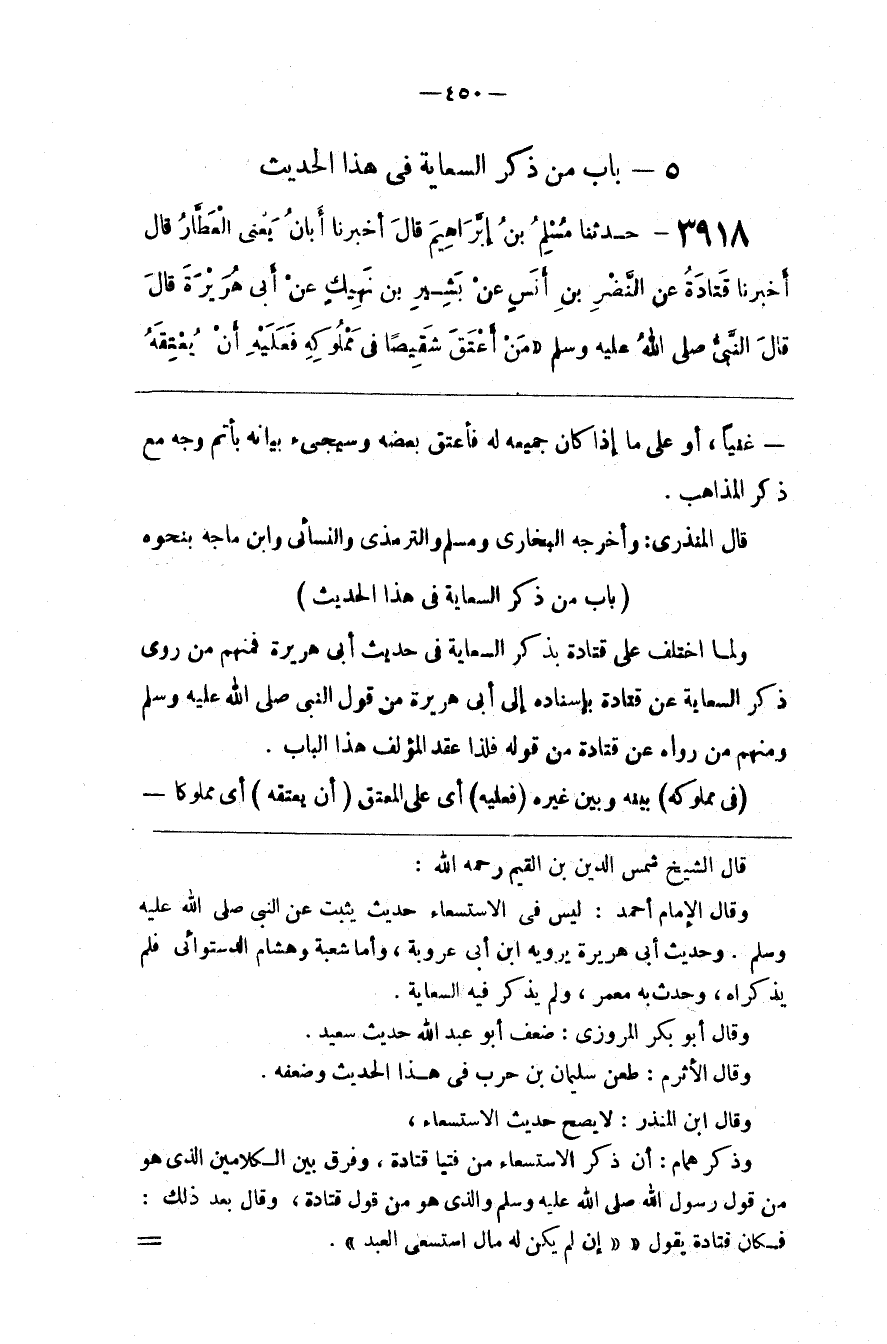 — ٤٥٠ —
٥ — باب من ذكر السعاية فى هذا الحديث
٣٩١٨ — حدثنا مُسْلِمُ بنُ إِبَّرَاهِيمَ قالَ أخبرنا أَبانُ يَعْنى الْعَطَّارُ قال
أخبرنا قَتادَةُ عن النَّضْرِ بنِ أَنَسٍ عنْ بَشِيرِ بن نَهِيكٍ عنْ أبى هُرَيْرَةَ قالَ
قالَ النَّبىُّ صلى اللهُ عليه وسلم «مَنْ أَعْتَقَ شَقِيصًا فى مَمْلُوكِهِ فَعَلَيْهِ أَنْ يُعْتِقَهُ
— غنياً ، أو على ما إذا كان جميعه له فأعتق بعضه وسيجىء بيانه بأتم وجه مع
ذكر المذاهب .
قال المنذرى : وأخرجه البخارى ومسلم والترمذى والنسائى وابن ماجه بنحوه
( باب من ذكر السعاية فى هذا الحديث )
ولما اختلف على قتادة بذكر السعاية فى حديث أبى هريرة فمنهم من روى
ذكر السعاية عن قتادة بإسناده إلى أبى هريرة من قول النبى صلى الله عليه وسلم
ومنهم من رواه عن قتادة من قوله فلذا عقد المؤلف هذا الباب .
(فى مملوكه) بينه وبين غيره (فعليه) أى على المعتق ( أن يعتقه ) أى مملوكا —
قال الشيخ شمس الدين بن القيم رحمه الله :
وقال الإمام أحمد : ليس فى الاستسعاء حديث يثبت عن النبى صلى الله عليه
وسلم . وحديث أبى هريرة يرويه ابن أبى عروبة ، وأما شعبة وهشام الدستوائى فلم
يذكراه ، وحدث به معمر ، ولم يذكر فيه السعاية .
وقال أبو بكر المروزى : ضعف أبو عبد الله حديث سعيد .
وقال الأثرم : طعن سليمان بن حرب فى هذا الحديث وضعفه .
وقال ابن المنذر : لايصح حديث الاستسعاء ،
وذكر همام : أن ذكر الاستسعاء من فتيا قتادة ، وفرق بين الكلامين الذى هو
من قول رسول الله صلى الله عليه وسلم والذى هو من قول قتادة ، وقال بعد ذلك :
فكان قتادة يقول « « إن لم يكن له مال استسعى العبد » . =